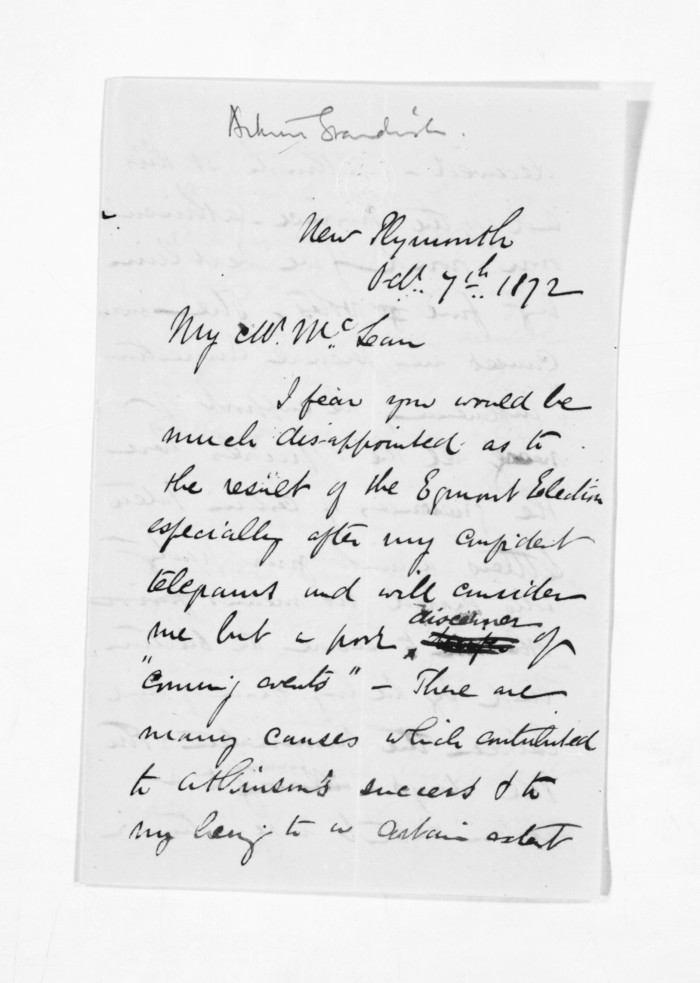 Arthur Standish.
New Plymouth
Octr. 7th. 1872
My Mr. McLean
I fear you would be
much disappointed as to
the result of the Egmont Election
especially after my confident
telegrams and will consider
me but a poor discerner of
"coming events" – There are
many causes which contributed
to Atkinson's success & to
my being to a certain extent